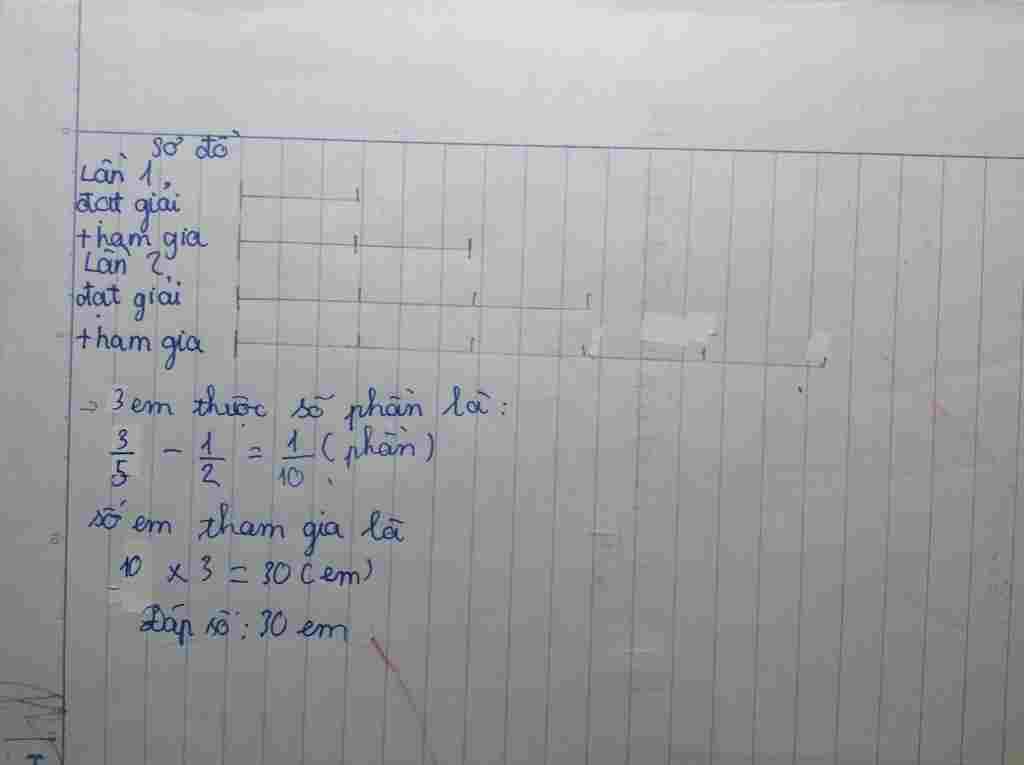 Sơ đồ
Lần 1,
đạt giải
tham gia
Lần 2,
đạt giải
tham gia
→ 3 em thuộc số phần là:
3/5 - 1/2 = 1/10 (phần)
số em tham gia là
10 x 3 = 30 (em)
Đáp số: 30 em